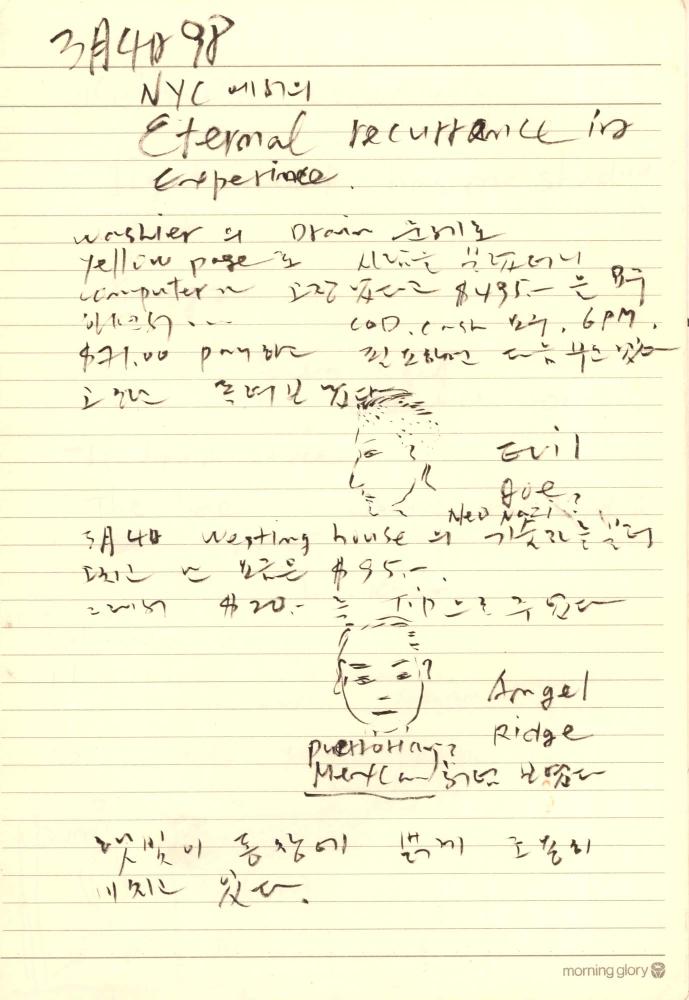 3月4日 98
NYC 에서의
Eternal recurrance in
Experince.
washier 의 Drain 문제로
yellow page로 사람을 불렀더니
computer가 고장 났다고 $495.- 을
... COD. cash 요구. 6PM.
$71.00 pay 하고 필요하면 다음
고 했다
Evil
Joe.
Neo Nazi?
3月4日 Westing house 의 기술자를 불러
고치고 난 요금은 $95.-.
그래서 $20.- 를 Tip 으로 주었다
Angel
Ridge
puertorican?
Mexican 처럼 보였다
햇빛이 동창에 밝게 조용히
비치고 있다.
morning glory